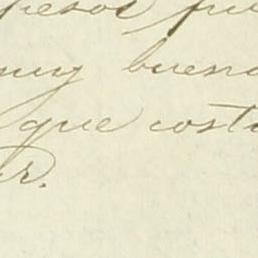 pesos
muy buena
que costa
r.